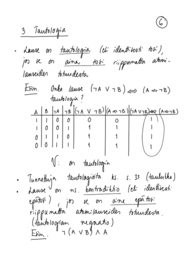 6
3 Tautologia
• Lause on tautologia (eli identtisesti tosi),
jos se on aina tosi riippumatta atomi-
lauseiden totuudesta.
Esim Onko lause (¬A ∨ ¬B) ⇔ (A ⇔ ¬B)
tautologia?
A B ¬A ¬B ¬A ∨ ¬B
1 1 0 0 0
1 0 0 1 1
0 1 1 0 1
0 0 1 1 1
V: on tautologia
• Tunnettuja tautologioita ks. s. 33 (taulukko)
• Lause on ns. kontradiktio (eli identtisesti
epätosi), jos se on aina epätosi
riippumatta atomilauseiden totuudesta.
(tautologian negaatio)
Esim. ¬(A ∨ B) ∧ A